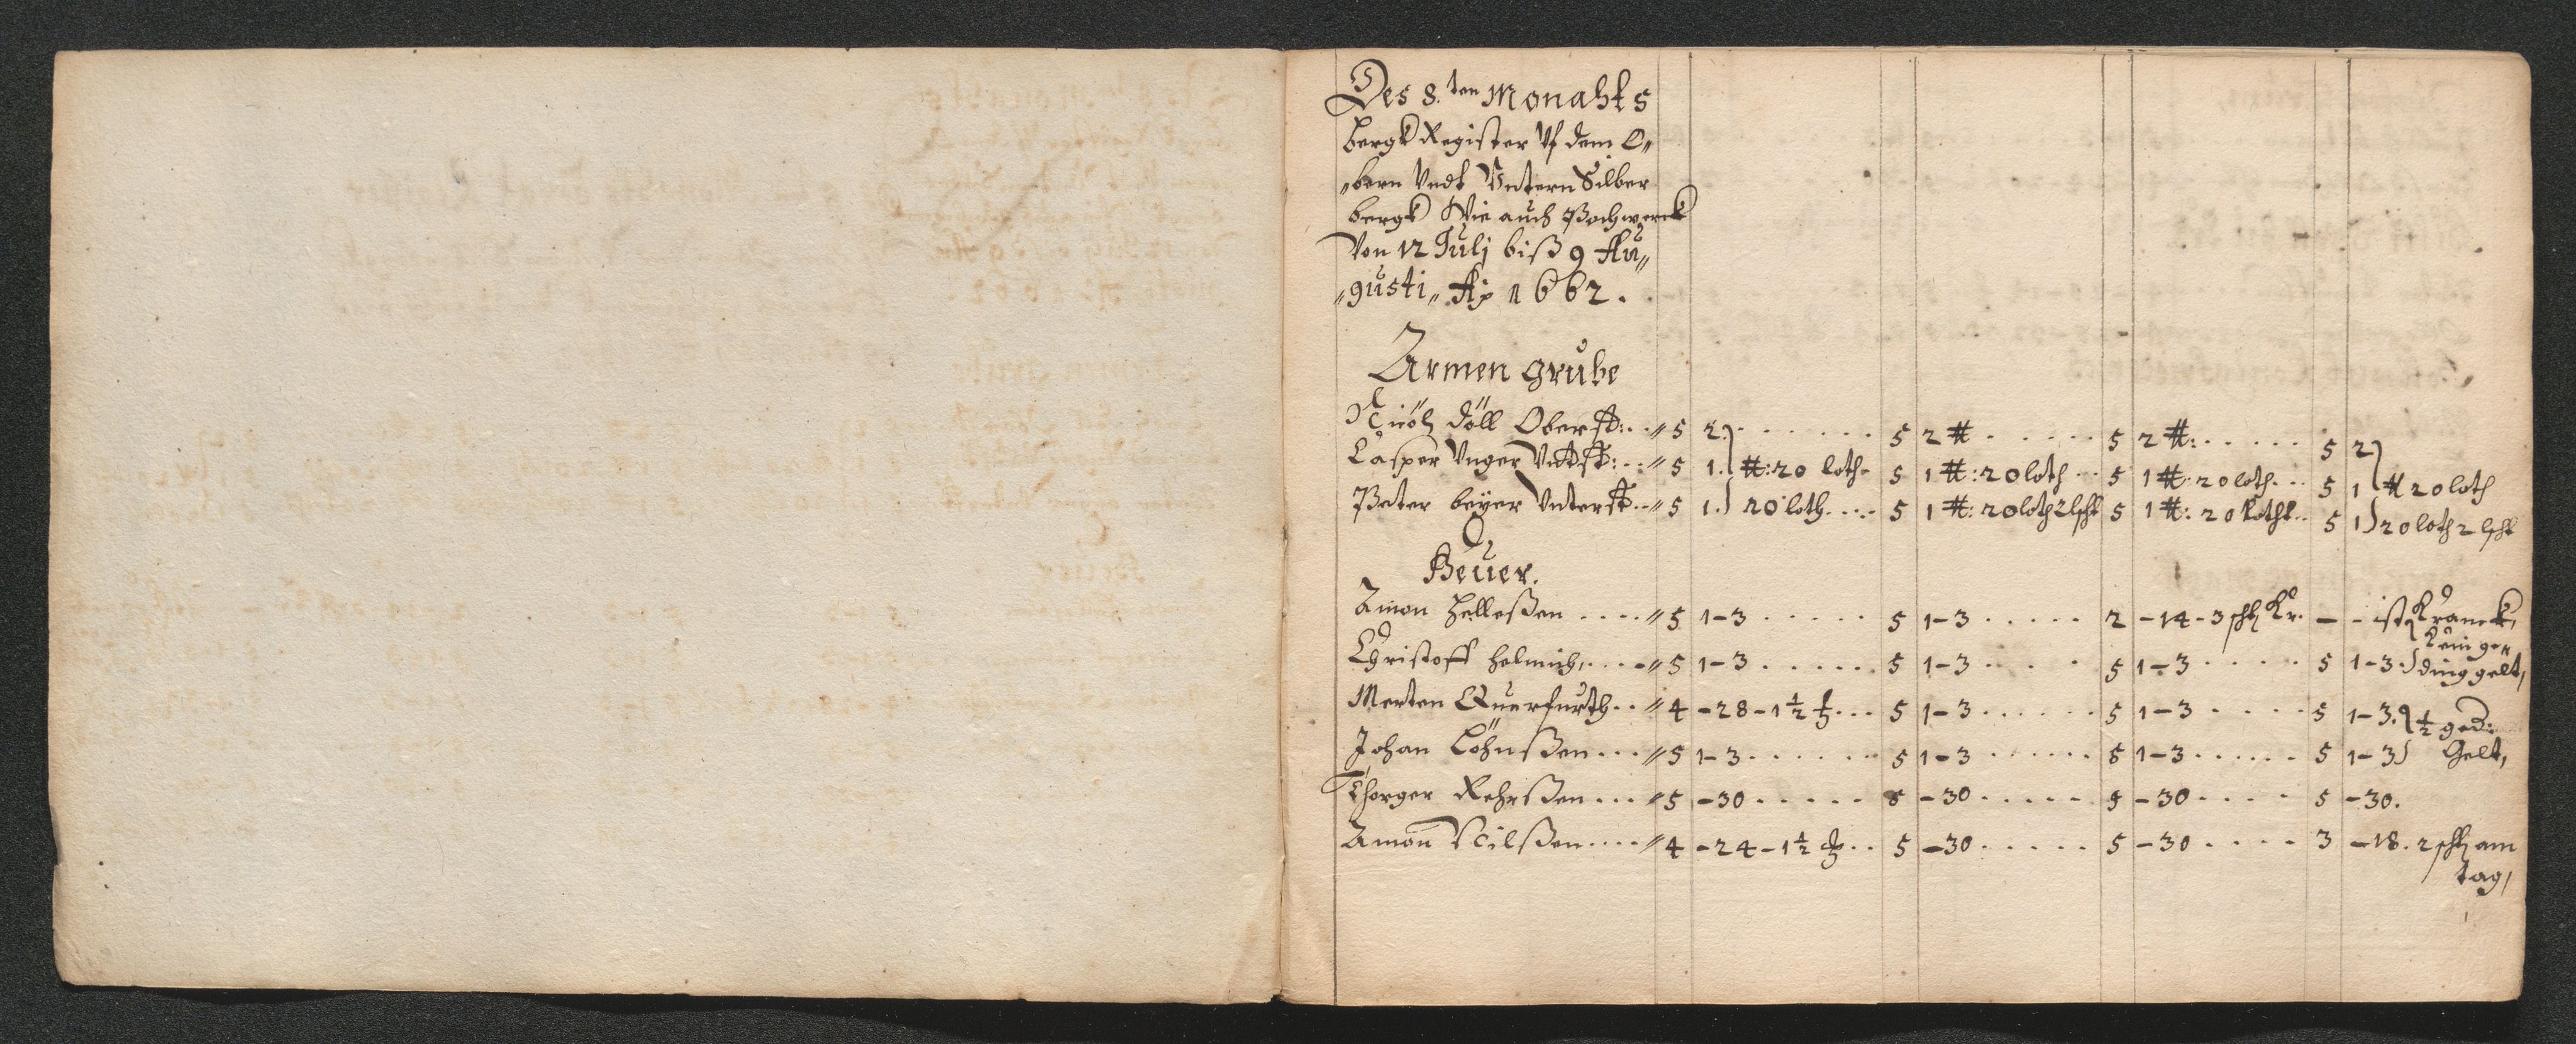 Des 8.ten Monahts
bergk Register Vf dem O„
„bern Undt Untern Silber
bergk Wie auch Pochwerck
Von 12 Julj biß 9 Au„
„gusti„ Ao 1662.
Armen grube
Döll Oberst:..„ 5 2.) ...... 5 2 # ..... 5 2 #: ..... 5 2)
Casper Unger Untst:..„ 5 1. #: 20 loth. 5 1 #: 20 loth .. 5 1 #: 20 loth... 5 1 # 20 loth
Peter beÿer Unterst..„ 5 1.) 20 loth.... 5 1 #: 20 loth 2 5 1 #: 20 loth.. 5 1) 20 loth 2
Heuer.
Amon Helleßen ....„ 5 1-3 ..... 5 1-3 ..... 2 -14-3 ßh Kr. — - ist Kranck,
Christoff Helmich,....„ 5 1-3 ...... 5 1-3 .... 5 1-3 .... 5 1-3.) Kein ge„
dinggelt,
Merten Querfurth..„ 4 -28-1½ ... 5 1-3 ...... 5 1-3 .... 5 1-3. ½ ged:
Johan Löhnßen...„ 5 1-3 ...... 5 1-3 ...... 5 1-3 ...... 5 1-3) Gelt,
Thorger Rehrßen...„ 5 -30 ..... 5 -30 ..... 5 -30 .... 5 -30.
Amon Nilßen....„ 4 -24-1½ .. 5 -30 ..... 5 -30 .... 3 -18. 2 ßh am
tag,